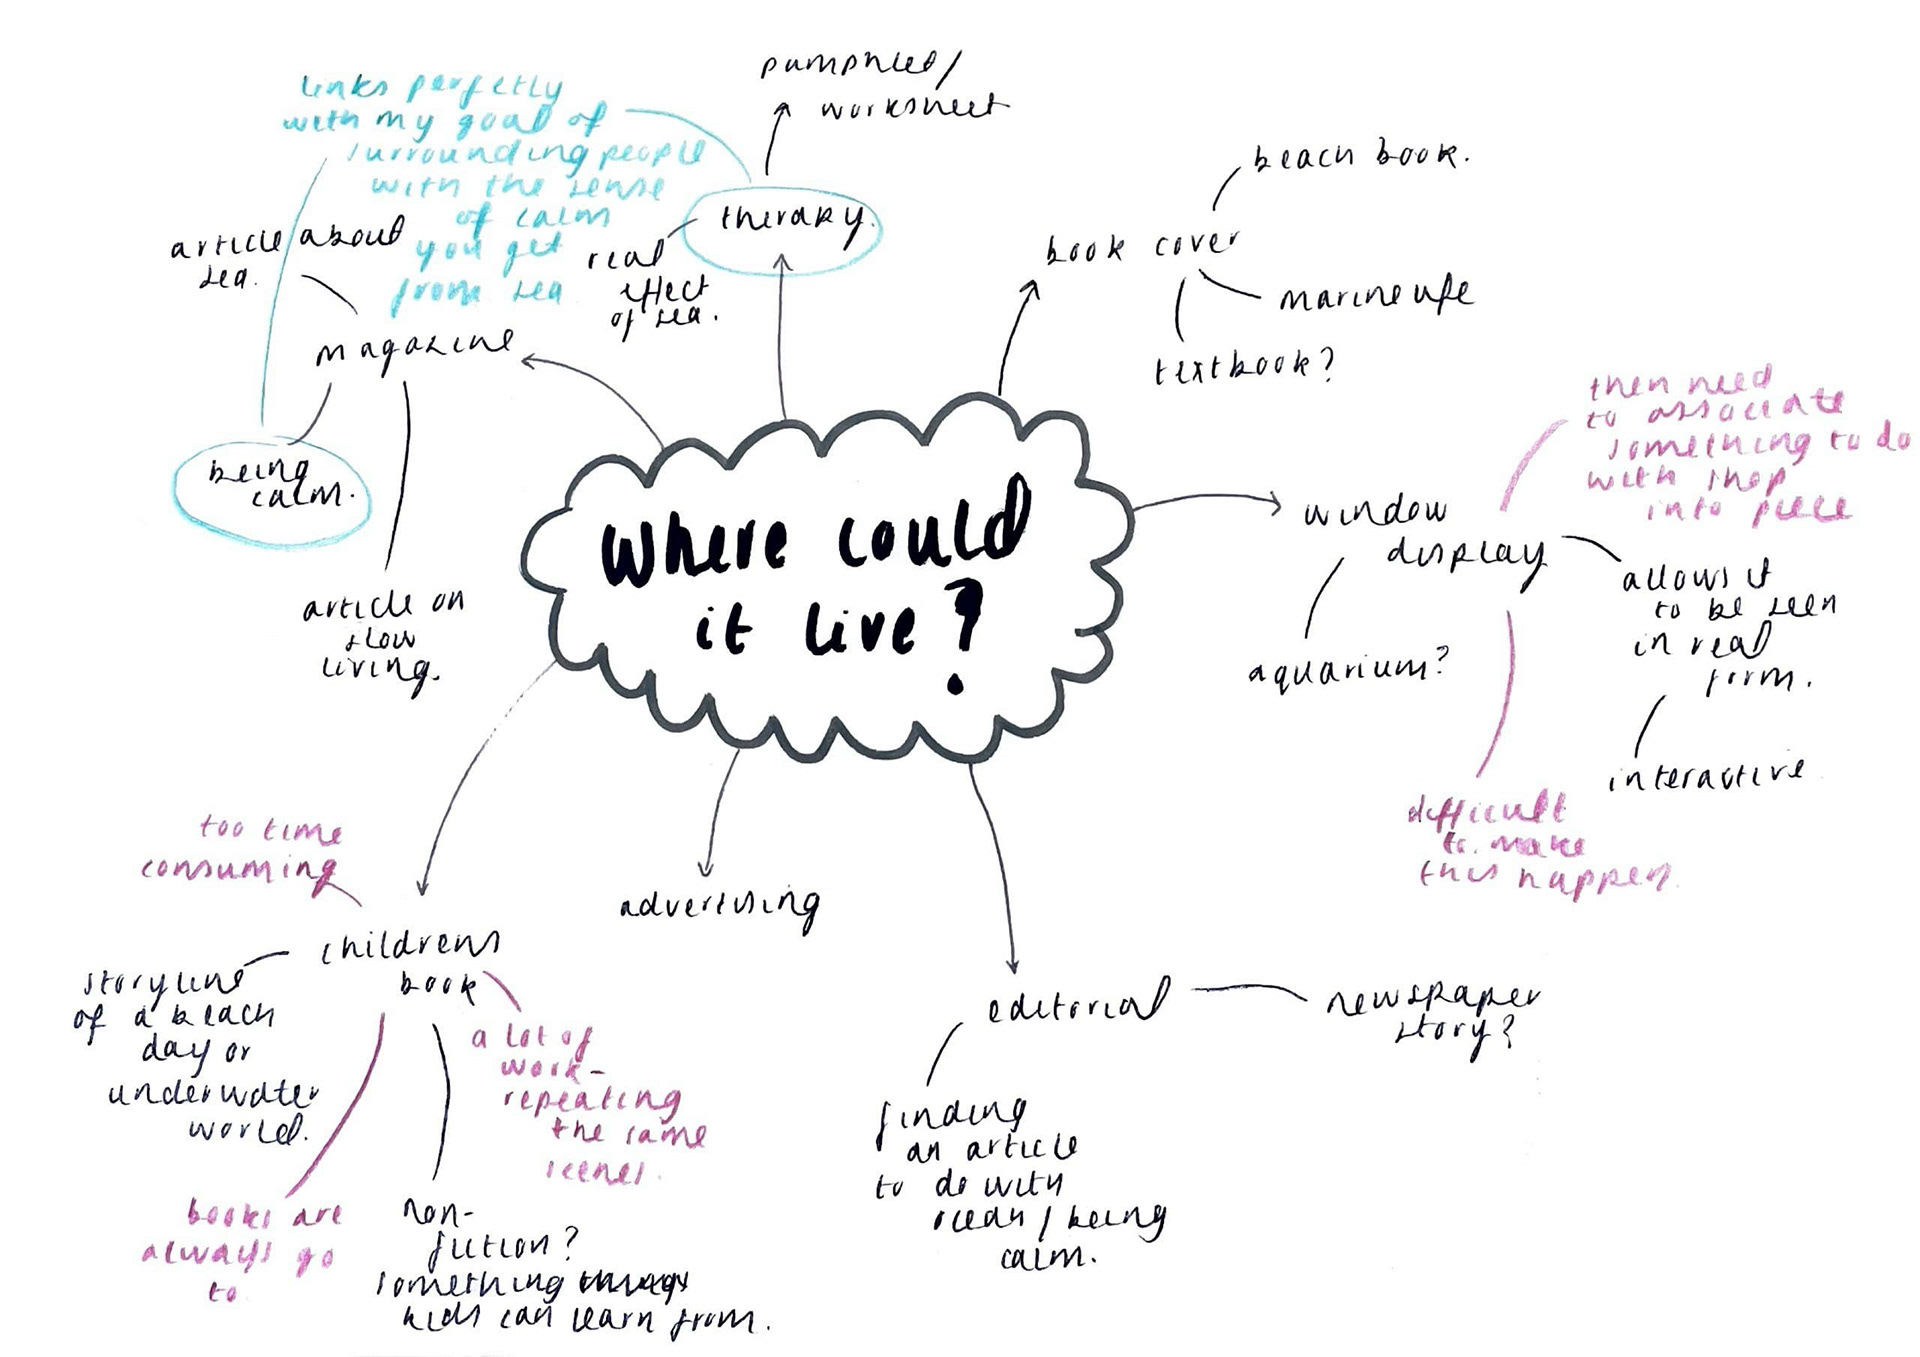 links perfectly
with my goal of
surrounding people
with the sense
of calm
you get
from sea
pamphlet/
worksheet
therapy.
real
effect
of sea.
beach book.
book cover
marine life
textbook?
article about
sea.
magazine
being
calm.
article on
slow
living.
Where could
it live?
then need
to associate
something to do
with shop
into piece
window
display
aquarium?
allows it
to be seen
in real
form.
interactive
difficult
to make
this happen.
too time
consuming
childrens
book
storyline
of a beach
day or
underwater
world.
a lot of
work-
repeating
the same
scenes.
books are
always go
to
non-
fiction?
something
kids can learn from.
advertising
editorial
newspaper
story?
finding
an article
to do with
ocean / being
calm.